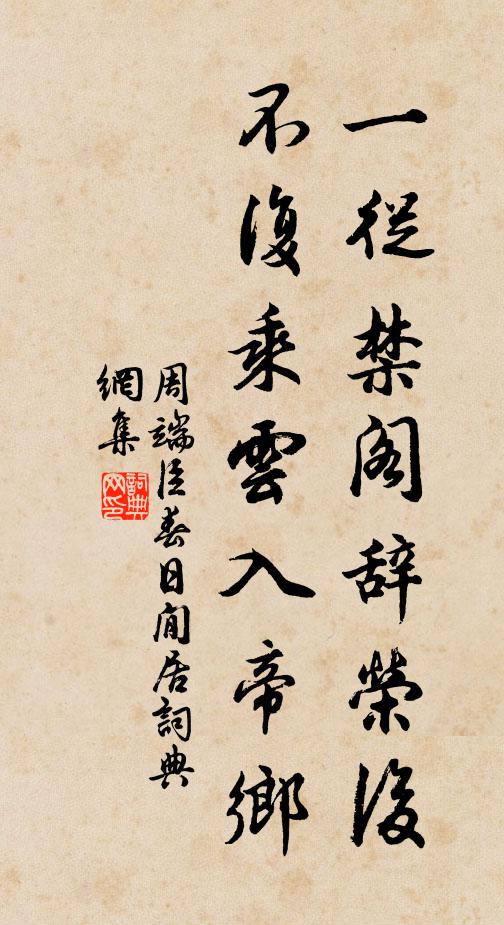 一從禁阁辞榮後
不復乘雲入帝鄉
周端臣春日閒居詞典
網集
詞典网印